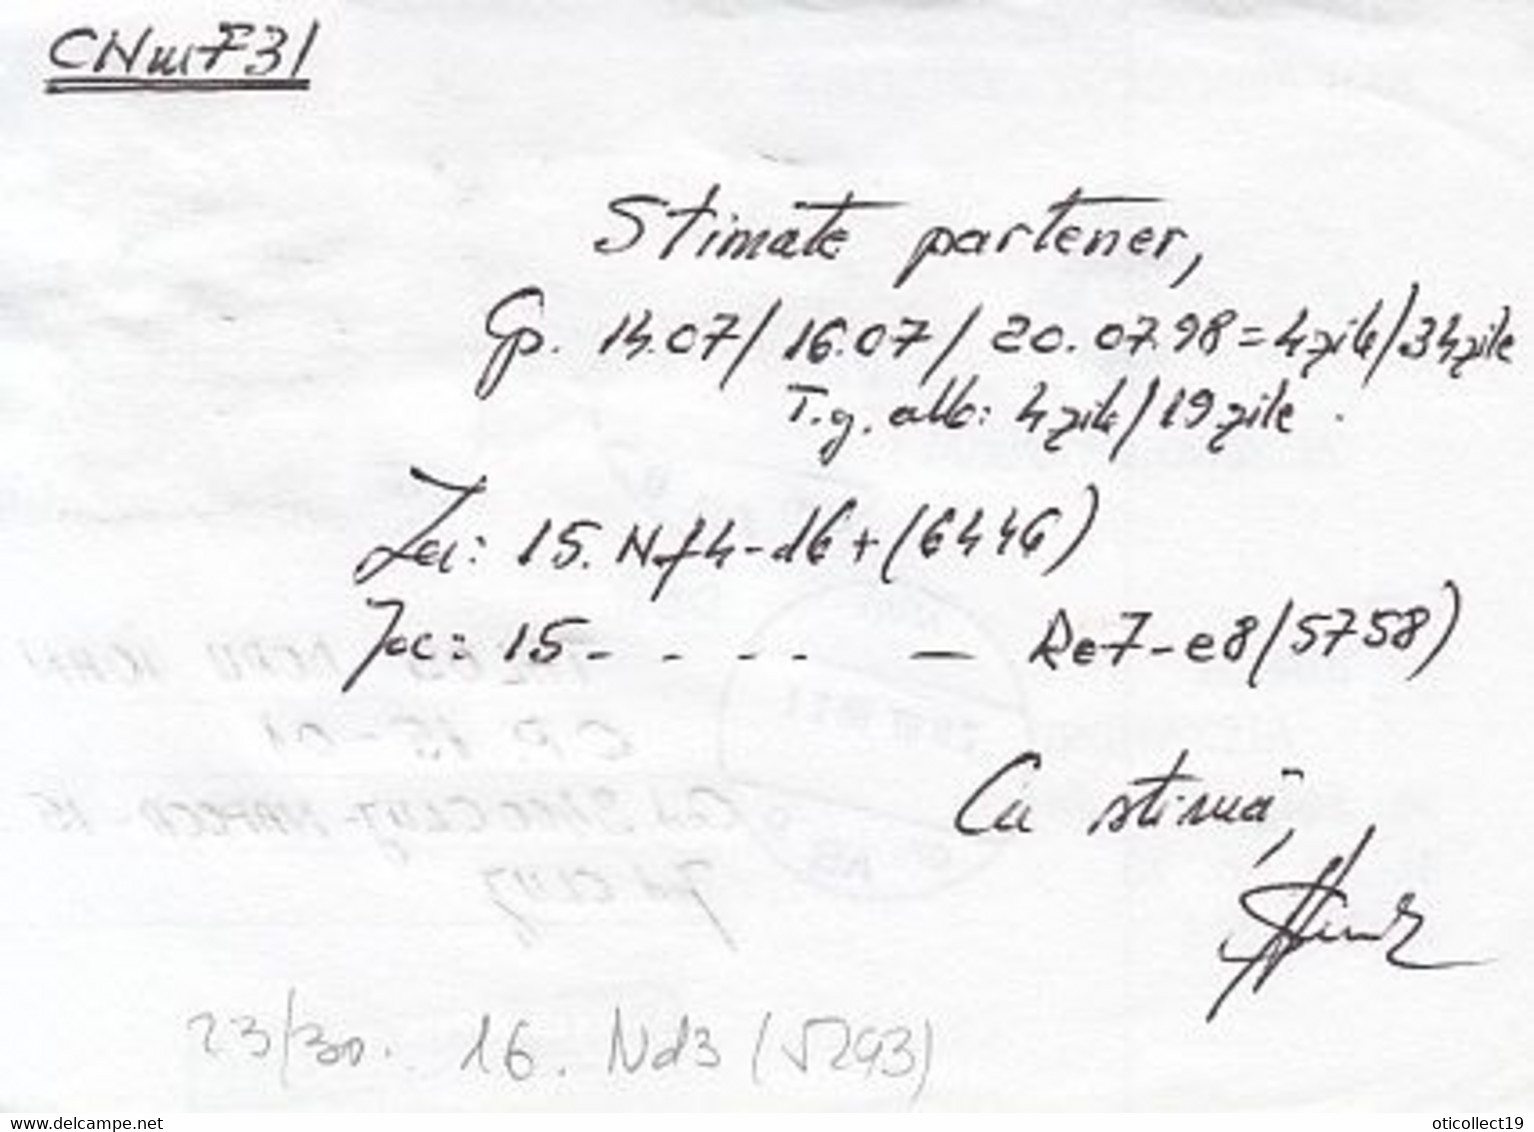 CNmF31
Stimate partener,
Cp. 14.07/16.07/20.07.98=4zile/34zile
T.g. alb: 4zile/19zile.
Zei: 15. Nf4-d6+(6446)
Joc: 15 - - - - - — Re7-e8(5758)
Cu stimă,
23/30. 16. Nd3 (5293)
www.delcampe.net
oticollect19